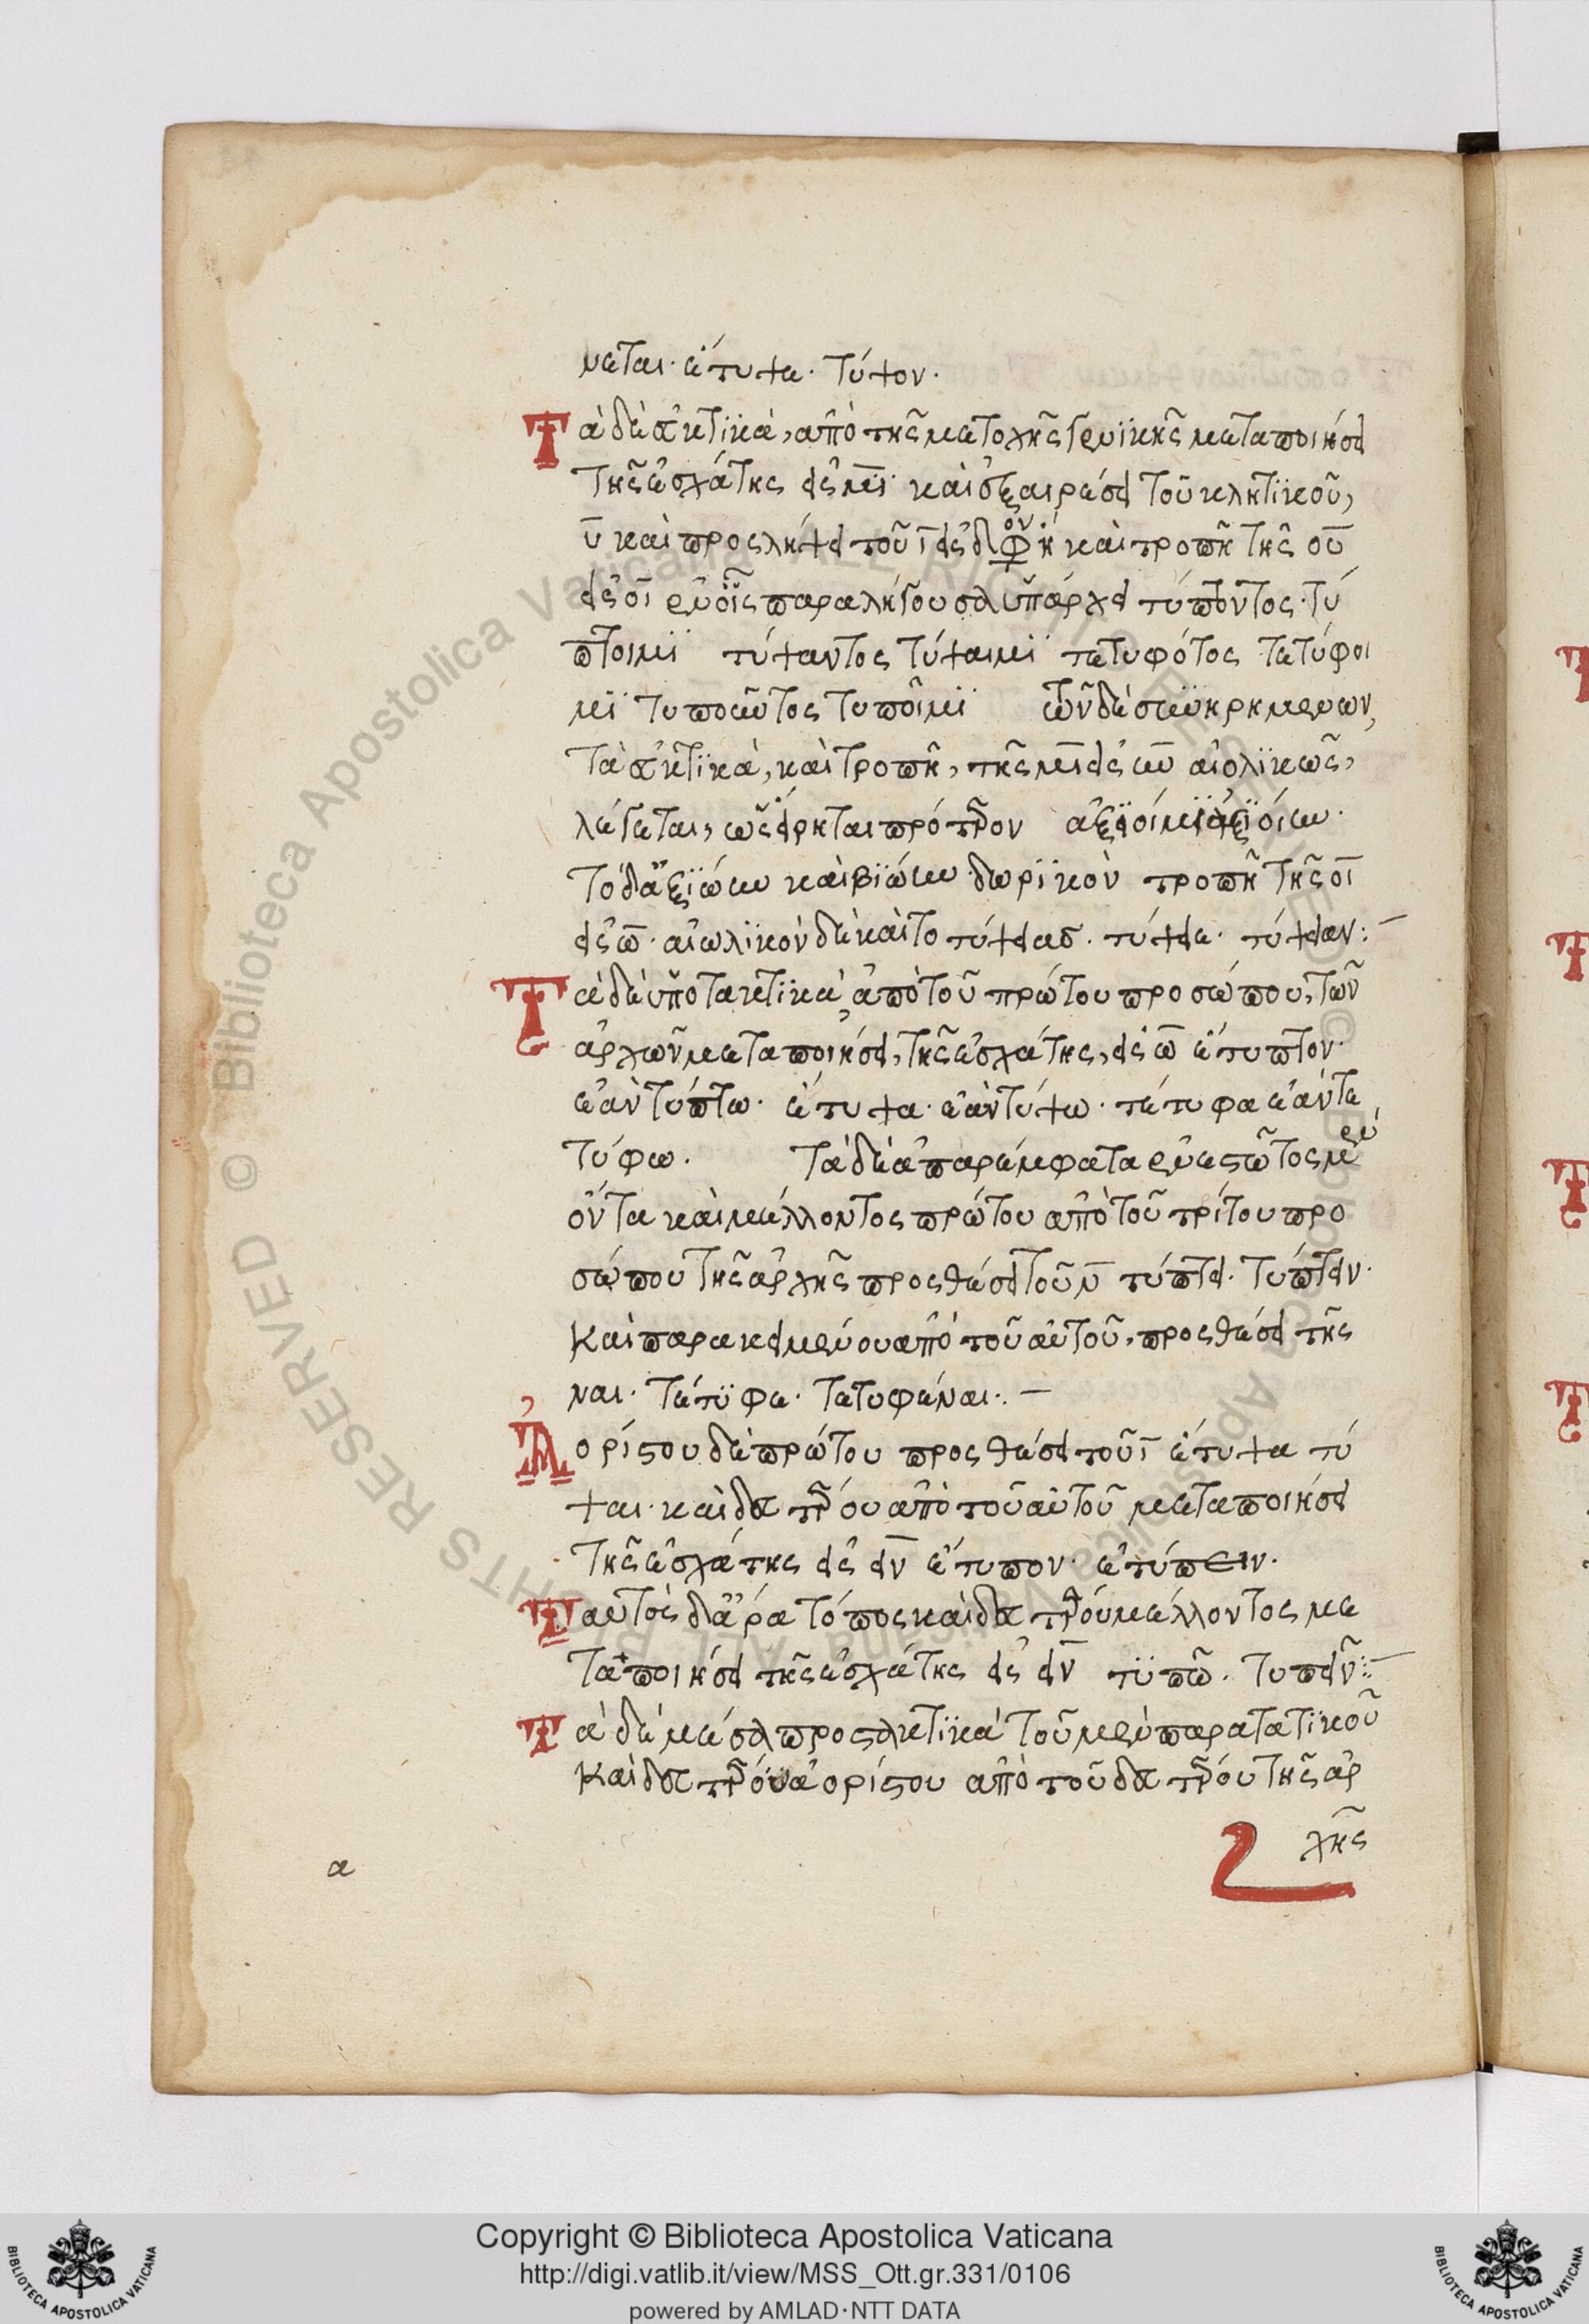 νεται· ἔτυψα· τύψον·
Τὰ δὲ εὐκτικὰ, ἀπὸ τῆς μετοχῆς γενικῆς μεταποιήσει
τῆς ἐσχάτης εἰς μῑ· καὶ ἐξαιρέσει τοῦ κλητικοῦ,
ῡ καὶ προσλήψει τοῦ ῑ εἰς καὶ τροπῆ τῆς οῡ
εἰς οῑ ἐν οἷς παραλήγουσα ὑπάρχει τύπτοντος· τύ
πτοιμι τύψαντος τύψαιμι τετυφότος τετύφοι
μι τυποῦντος τυποῖμι τῶν δὲ συγκρημένων,
τὰ εὐκτικὰ, καὶ τροπῆ, τῆς μῑ εἰς ην αἰολικῶς,
λέγεται, ὡς εἴρηται πρότερον ἀξιοίμι ἀξιοίην·
Τὸ δ' ἀξιώην καὶ βιώην δωρικὸν τροπῆ τῆς οῑ
εἰς ω̄· αἰωλικὸν δὲ καὶ το τύψειας· τύψειε· τύψειαν:
Τὰ δὲ ὑποτακτικὰ ἀπὸ τοῦ πρώτου προσώπου, τῶν
ἀρχῶν μεταποιήσει, τῆς ἐσχάτης, εἰς ω̄ ἔτυπτον·
ἐὰν τύπτω· ἔτυψα· ἐὰν τύψω· τέτυφα ἐὰν τε
τύφω. Τὰ δὲ ἀπαρέμφατα ἐνεστῶτος μὲν
ὄντα καὶ μέλλοντος πρώτου ἀπὸ τοῦ τρίτου προ
σώπου τῆς ἀρχῆς προσθέσει τοῦ ν̄ τύπτει· τύπτειν·
Καὶ παρακειμένου ἀπὸ τοῦ αὐτοῦ, προσθέσει τῆς
ναι· τέτυφε· τετυφέναι:—
Ἀορίστου δὲ πρώτου προσθέσει τοῦ ῑ ἔτυψα τύ
ψαι· καὶ δευτέρου ἀπὸ τοῦ αὐτοῦ μεταποιήσει
τῆς ἐσχάτης εἰς εῖν ἔτυπον· ἐτύπειν·
Ταυτὸς δ' ἄρα τόπος καὶ δευτέρου μέλλοντος με
ταποιήσει τῆς ἐσχάτης εἰς εῖν τυπῶ· τυπεῖν:—
Τὰ δὲ μέσα προστακτικὰ τοῦ μὲν παρατατικοῦ
Καὶ δευτέρου ἀορίστου ἀπὸ τοῦ δευτέρου τῆς ἀρ
χῆς
α
© Biblioteca Apostolica Vaticana ALL RIGHTS RESERVED
Copyright © Biblioteca Apostolica Vaticana
http://digi.vatlib.it/view/MSS_Ott.gr.331/0106
powered by AMLAD·NTT DATA
BIBLIOTECA APOSTOLICA VATICANA
BIBLIOTECA APOSTOLICA VATICANA